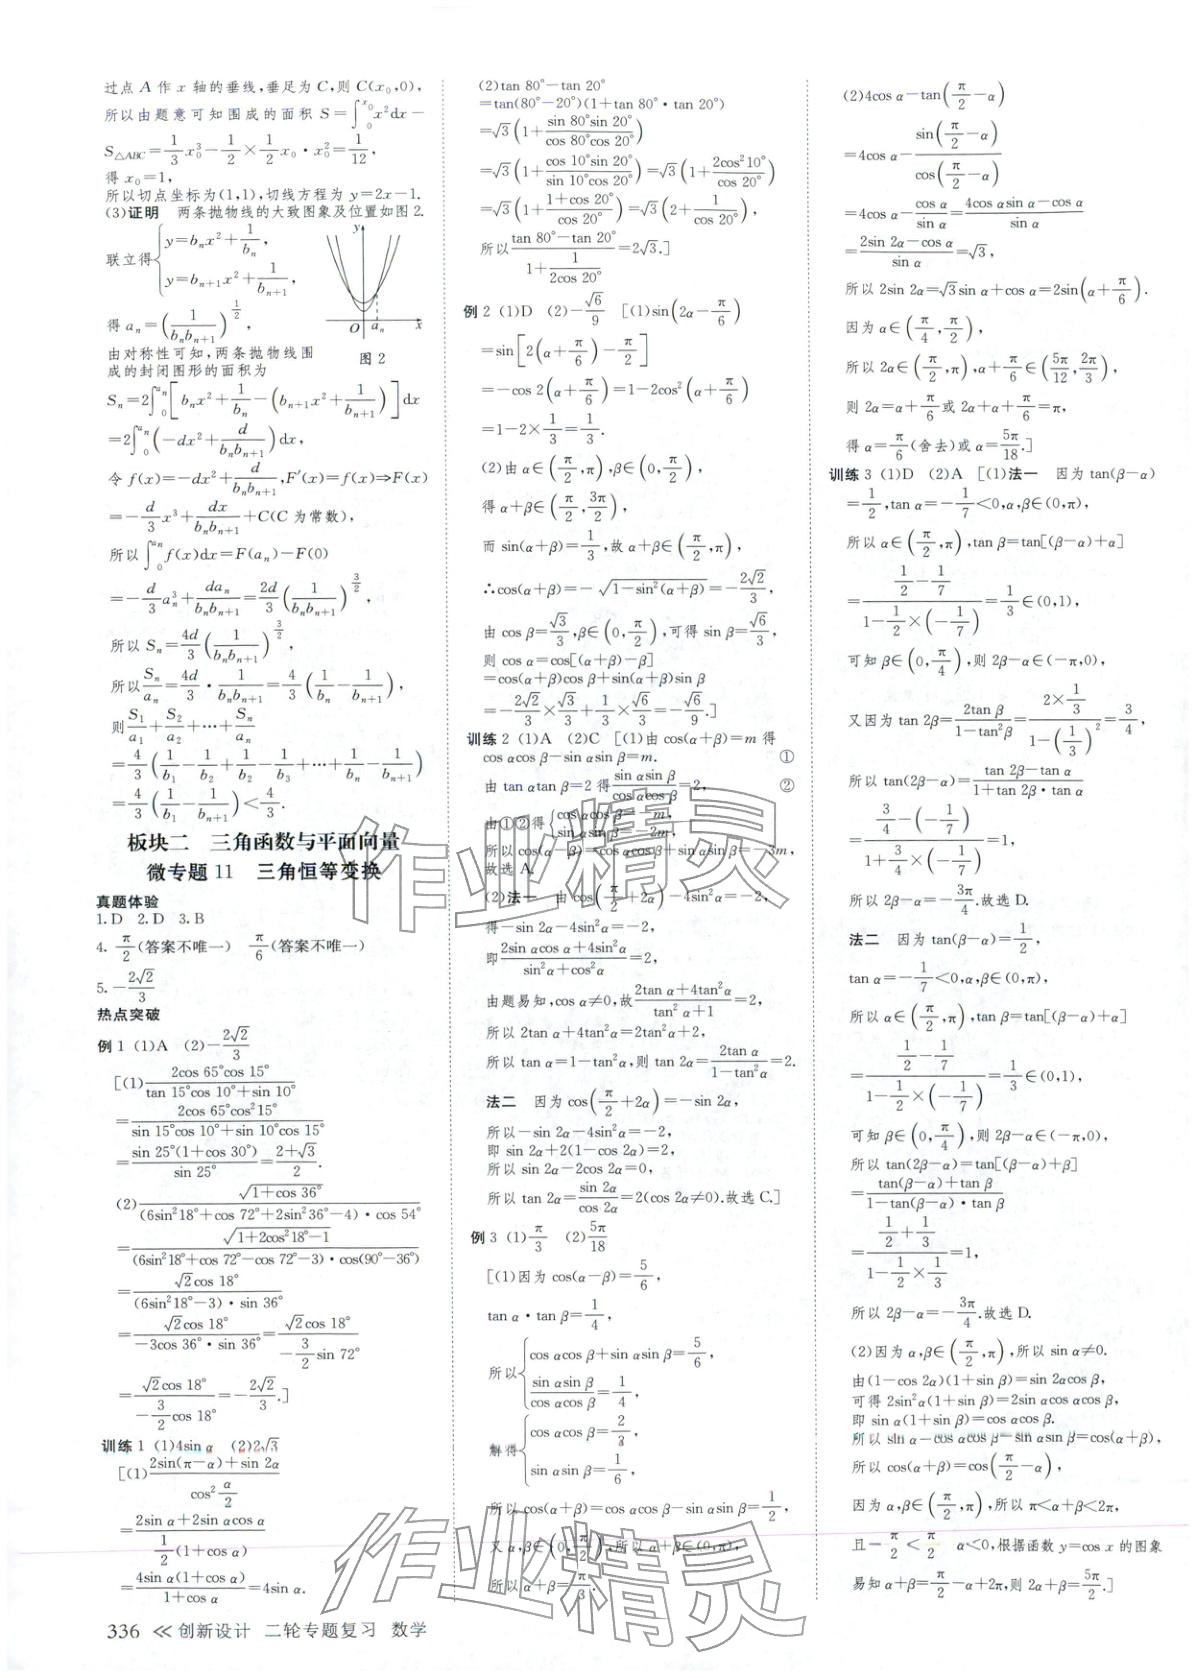 过点 A 作 x 轴的垂线,垂足为 C,则 C(x₀,0),
所以由题意可知围成的面积 S=∫₀^{x₀} x²dx-
S△ABC=1/3 x₀³-1/2×1/2 x₀·x₀²=1/12,
得 x₀=1,
所以切点坐标为(1,1),切线方程为 y=2x-1.
(3)证明 两条抛物线的大致图象及位置如图 2.
联立得{y=bₙx²+1/bₙ,
y=bₙ₊₁x²+1/bₙ₊₁,
得 aₙ=(1/(bₙbₙ₊₁))^{1/2},
y
O aₙ x
图 2
由对称性可知,两条抛物线围
成的封闭图形的面积为
Sₙ=2∫₀^{aₙ}[bₙx²+1/bₙ-(bₙ₊₁x²+1/bₙ₊₁)]dx
=2∫₀^{aₙ}(-dx²+d/(bₙbₙ₊₁))dx,
令 f(x)=-dx²+d/(bₙbₙ₊₁),F′(x)=f(x)⇒F(x)
=-d/3 x³+dx/(bₙbₙ₊₁)+C(C 为常数),
所以∫₀^{aₙ} f(x)dx=F(aₙ)-F(0)
=-d/3 aₙ³+daₙ/(bₙbₙ₊₁)=2d/3(1/(bₙbₙ₊₁))^{3/2},
所以 Sₙ=4d/3(1/(bₙbₙ₊₁))^{3/2},
所以 Sₙ/aₙ=4d/3·1/(bₙbₙ₊₁)=4/3(1/bₙ-1/bₙ₊₁),
则 S₁/a₁+S₂/a₂+…+Sₙ/aₙ
=4/3(1/b₁-1/b₂+1/b₂-1/b₃+…+1/bₙ-1/bₙ₊₁)
=4/3(1/b₁-1/bₙ₊₁)<4/3.
板块二 三角函数与平面向量
微专题 11 三角恒等变换
真题体验
1. D 2. D 3. B
4. π/2(答案不唯一) π/6(答案不唯一)
5. -2√2/3
热点突破
例 1 (1)A (2)-2√2/3
[(1)2cos 65°cos 15°/(tan 15°cos 10°+sin 10°)
=2cos 65°cos²15°/(sin 15°cos 10°+sin 10°cos 15°)
=sin 25°(1+cos 30°)/sin 25°=(2+√3)/2.
(2)√(1+cos 36°)/((6sin²18°+cos 72°+2sin²36°-4)·cos 54°)
=√(1+2cos²18°-1)/((6sin²18°+cos 72°-cos 72°-3)·cos(90°-36°))
=√2cos 18°/((6sin²18°-3)·sin 36°)
=√2cos 18°/(-3cos 36°·sin 36°)=√2cos 18°/(-3/2 sin 72°)
=√2cos 18°/(-3/2 cos 18°)=-2√2/3.]
训练 1 (1)4sin α (2)2√3
[(1)(2sin(π-α)+sin 2α)/cos²(α/2)
=(2sin α+2sin αcos α)/(1/2(1+cos α))
=4sin α(1+cos α)/(1+cos α)=4sin α.
336 ≪ 创新设计 二轮专题复习 数学
(2)tan 80°-tan 20°
=tan(80°-20°)(1+tan 80°·tan 20°)
=√3(1+sin 80°sin 20°/(cos 80°cos 20°))
=√3(1+cos 10°sin 20°/(sin 10°cos 20°))=√3(1+2cos²10°/cos 20°)
=√3(1+(1+cos 20°)/cos 20°)=√3(2+1/cos 20°),
所以(tan 80°-tan 20°)/(1+1/(2cos 20°))=2√3.]
例 2 (1)D (2)-√6/9 [(1)sin(2α-π/6)
=sin[2(α+π/6)-π/2]
=-cos 2(α+π/6)=1-2cos²(α+π/6)
=1-2×1/3=1/3.
(2)由 α∈(π/2,π),β∈(0,π/2),
得 α+β∈(π/2,3π/2),
而 sin(α+β)=1/3,故 α+β∈(π/2,π),
∴cos(α+β)=-√(1-sin²(α+β))=-2√2/3,
由 cos β=√3/3,β∈(0,π/2),可得 sin β=√6/3,
则 cos α=cos[(α+β)-β]
=cos(α+β)cos β+sin(α+β)sin β
=-2√2/3×√3/3+1/3×√6/3=-√6/9.]
训练 2 (1)A (2)C [(1)由 cos(α+β)=m 得
cos αcos β-sin αsin β=m. ①
由 tan αtan β=2 得 sin αsin β/(cos αcos β)=2, ②
由①②得{cos αcos β=-m,
sin αsin β=-2m,
所以 cos(α-β)=cos αcos β+sin αsin β=-3m,
故选 A.
(2)法一 由 cos(π/2+2α)-4sin²α=-2,
得-sin 2α-4sin²α=-2,
即(2sin αcos α+4sin²α)/(sin²α+cos²α)=2,
由题易知,cos α≠0,故(2tan α+4tan²α)/(tan²α+1)=2,
所以 2tan α+4tan²α=2tan²α+2,
所以 tan α=1-tan²α,则 tan 2α=2tan α/(1-tan²α)=2.
法二 因为 cos(π/2+2α)=-sin 2α,
所以-sin 2α-4sin²α=-2,
即 sin 2α+2(1-cos 2α)=2,
所以 sin 2α-2cos 2α=0,
所以 tan 2α=sin 2α/cos 2α=2(cos 2α≠0).故选 C.]
例 3 (1)π/3 (2)5π/18
[(1)因为 cos(α-β)=5/6,
tan α·tan β=1/4,
所以{cos αcos β+sin αsin β=5/6,
sin αsin β/(cos αcos β)=1/4,
解得{cos αcos β=2/3,
sin αsin β=1/6,
所以 cos(α+β)=cos αcos β-sin αsin β=1/2,
又 α,β∈(0,π/2),所以 α+β∈(0,π),
所以 α+β=π/3.
(2)4cos α-tan(π/2-α)
=4cos α-sin(π/2-α)/cos(π/2-α)
=4cos α-cos α/sin α=(4cos αsin α-cos α)/sin α
=(2sin 2α-cos α)/sin α=√3,
所以 2sin 2α=√3sin α+cos α=2sin(α+π/6).
因为 α∈(π/4,π/2),
所以 2α∈(π/2,π),α+π/6∈(5π/12,2π/3),
则 2α=α+π/6 或 2α+α+π/6=π,
得 α=π/6(舍去)或 α=5π/18.]
训练 3 (1)D (2)A [(1)法一 因为 tan(β-α)
=1/2,tan α=-1/7<0,α,β∈(0,π),
所以 α∈(π/2,π),tan β=tan[(β-α)+α]
=(1/2-1/7)/(1-1/2×(-1/7))=1/3∈(0,1),
可知 β∈(0,π/4),则 2β-α∈(-π,0),
又因为 tan 2β=2tan β/(1-tan²β)=(2×1/3)/(1-(1/3)²)=3/4,
所以 tan(2β-α)=(tan 2β-tan α)/(1+tan 2β·tan α)
=(3/4-(-1/7))/(1+3/4×(-1/7))=1,
所以 2β-α=-3π/4.故选 D.
法二 因为 tan(β-α)=1/2,
tan α=-1/7<0,α,β∈(0,π),
所以 α∈(π/2,π),tan β=tan[(β-α)+α]
=(1/2-1/7)/(1-1/2×(-1/7))=1/3∈(0,1),
可知 β∈(0,π/4),则 2β-α∈(-π,0),
所以 tan(2β-α)=tan[(β-α)+β]
=(tan(β-α)+tan β)/(1-tan(β-α)·tan β)
=(1/2+1/3)/(1-1/2×1/3)=1,
所以 2β-α=-3π/4.故选 D.
(2)因为 α,β∈(π/2,π),所以 sin α≠0.
由(1-cos 2α)(1+sin β)=sin 2αcos β,
可得 2sin²α(1+sin β)=2sin αcos αcos β,
即 sin α(1+sin β)=cos αcos β.
所以 sin α=cos αcos β-sin αsin β=cos(α+β),
所以 cos(α+β)=cos(π/2-α),
因为 α,β∈(π/2,π),所以 π<α+β<2π,
且-π/2<π/2-α<0,根据函数 y=cos x 的图象
易知 α+β=π/2-α+2π,则 2α+β=5π/2.]
作业精灵
作业精灵